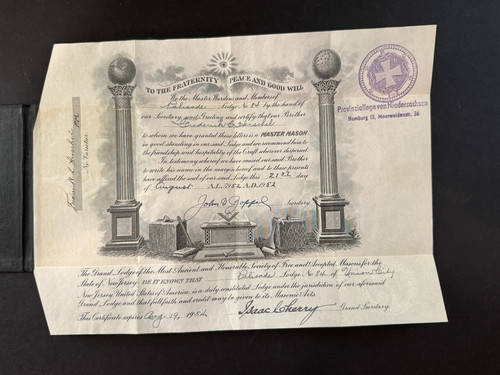 TO THE FRATERNITY PEACE AND GOOD WILL
We the Master Wardens and Members of
Palisade Lodge No. 84 by the hand of
our Secretary send Greeting and certify that our Brother
Frederick
to whom we have granted these letters is a MASTER MASON
in good standing in our said Lodge and we recommend him to
the friendship and hospitality of the Craft wherever dispersed.
In testimony whereof we have caused our said Brother
to write his name in the margin hereof and to these presents
have affixed the seal of our said Lodge this 21st day
of August A.L. 5952 A.D. 1952
John Goppel Secretary
Ne Varietur
Provinzialloge von Niedersachsen
Hamburg 13, Moorweidenstr. 36
The Grand Lodge of the Most Ancient and Honorable Society of Free and Accepted Masons for the
State of New Jersey BE IT KNOWN THAT Palisade Lodge No. 84 of Union City
New Jersey United States of America is a duly constituted Lodge under the jurisdiction of our aforesaid
Grand Lodge and that full faith and credit may be given to its Masonic Acts.
This Certificate expires 1954 Isaac Cherry Grand Secretary.